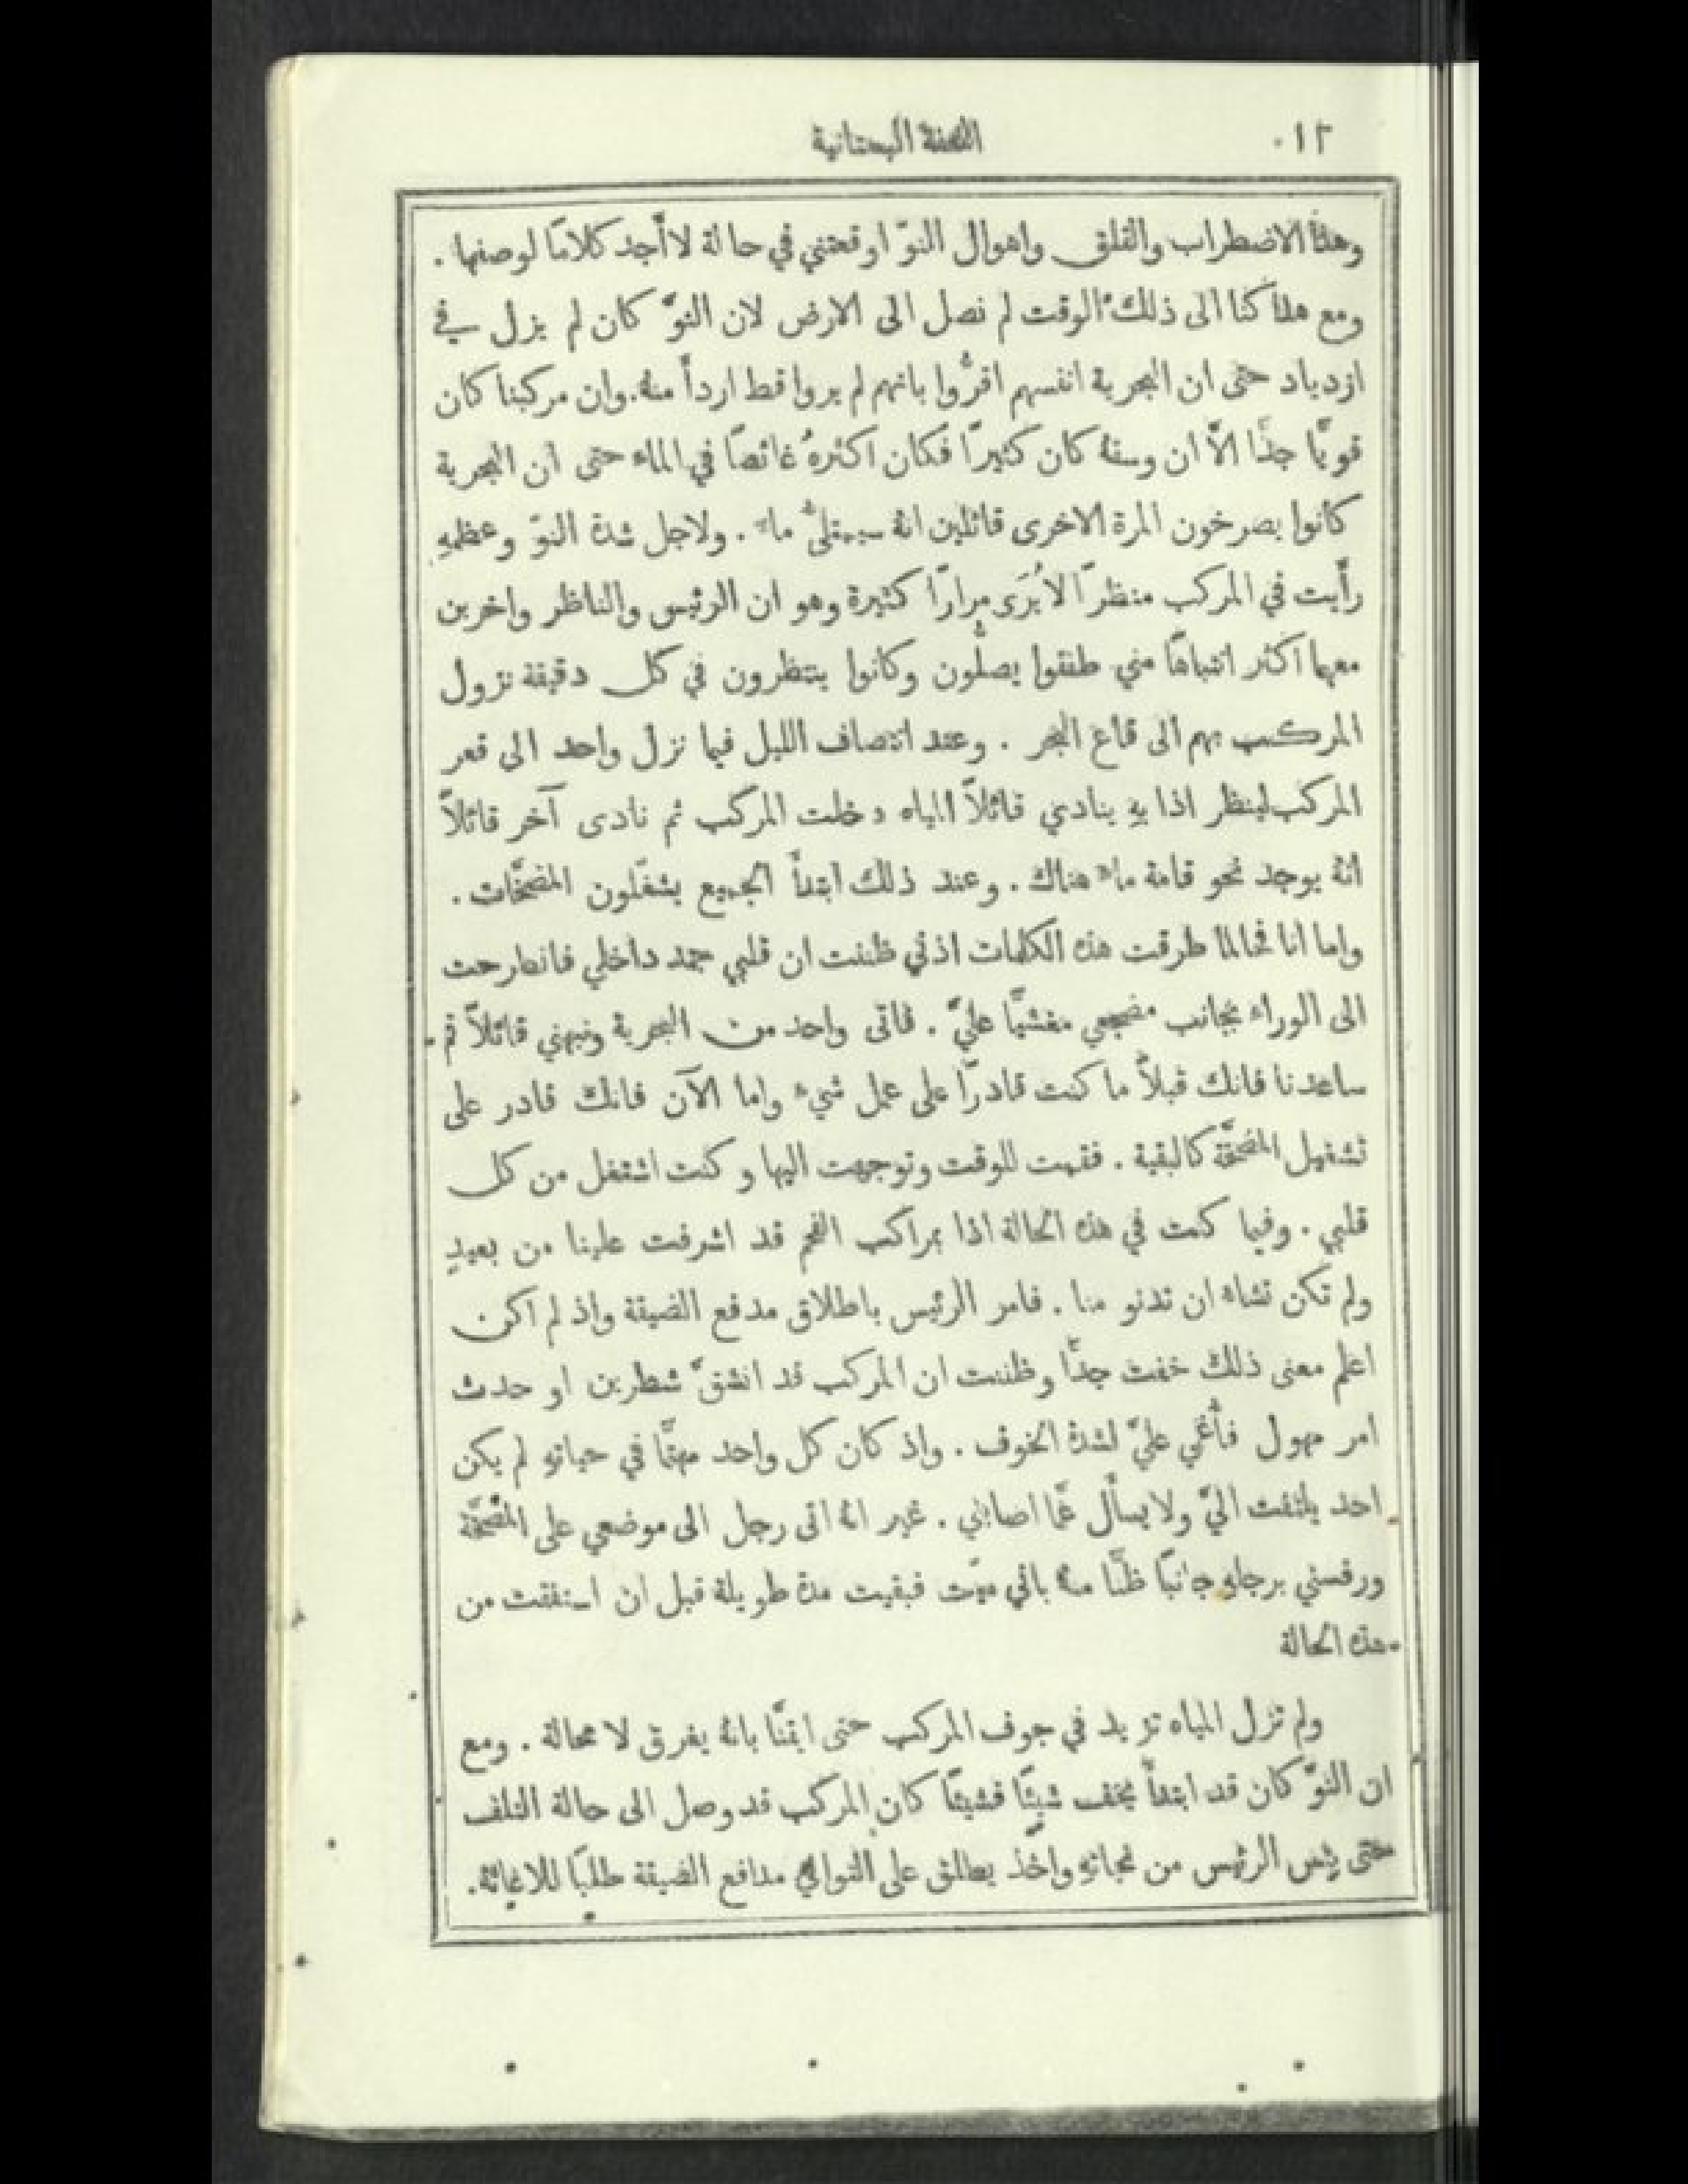 ١٢ التحفة البستانية
وهذا الاضطراب والقلق واهوال النوّ اوقعتني في حالة لا أجد كلامًا لوصفها .
ومع هذا كنا الى ذلك الوقت لم نصل الى الارض لان النوّ كان لم يزل في
ازدياد حتى ان البحرية انفسهم اقرُّوا بانهم لم يروا قط اردأ منهُ. وان مركبنا كان
قويًّا جدًّا الاَّ ان وسقهُ كان كثيرًا فكان اكثرهُ غائصًا في الماء حتى ان البحرية
كانوا يصرخون المرة الاخرى قائلين انهُ سيمتلئُ ماءً . ولاجل شدة النوّ وعظمهِ
رأَيت في المركب منظرًا لا يُرَى مرارًا كثيرة وهو ان الرئيس والناظر واخرين
معهما اكثر انتباهًا مني طفقوا يصلُّون وكانوا ينتظرون في كل دقيقة نزول
المركب بهم الى قاع البحر . وعند انتصاف الليل فيما نزل واحد الى قعر
المركب لينظر اذا بهِ ينادي قائلاً المياه دخلت المركب ثم نادى آخر قائلاً
انهُ يوجد نحو قامة ماءٍ هناك . وعند ذلك ابتدأَ الجميع يشغّلون المضخَّات .
واما انا فحالما طرقت هذه الكلمات اذني ظننت ان قلبي جمد داخلي فانطرحت
الى الوراء بجانب مضجعي مغشيًّا عليَّ . فاتى واحد من البحرية ونبهني قائلاً قم
ساعدنا فانك قبلاً ما كنت قادرًا على عمل شيء واما الآن فانك قادر على
تشغيل المضخَّة كالبقية . فقمت للوقت وتوجهت اليها وكنت اشتغل من كل
قلبي . وفيما كنت في هذه الحالة اذا بمراكب الفحم قد اشرفت علينا من بعيدٍ
ولم تكن تشاء ان تدنو منا . فامر الرئيس باطلاق مدفع الضيقة واذ لم اكن
اعلم معنى ذلك خفت جدًّا وظننت ان المركب قد انشقَّ شطرين او حدث
امر مهول فأُغمي عليَّ لشدة الخوف . واذ كان كل واحد مهتمًّا في حياتهِ لم يكن
احد يلتفت اليَّ ولا يسأَل عمَّا اصابني . غير انهُ اتى رجل الى موضعي على المضخَّة
ورفسني برجلهِ جانبًا ظنًّا منهُ باني ميّت فبقيت مدة طويلة قبل ان استفقت من
هذه الحالة
ولم تزل المياه تزيد في جوف المركب حتى ايقنَّا بانهُ يغرق لا محالة . ومع
ان النوّ كان قد ابتدأَ يخفّ شيئًا فشيئًا كان المركب قد وصل الى حالة التلف
حتى يئس الرئيس من نجاتهِ واخذ يطلق على التوالي مدافع الضيقة طلبًا للاغاثة .